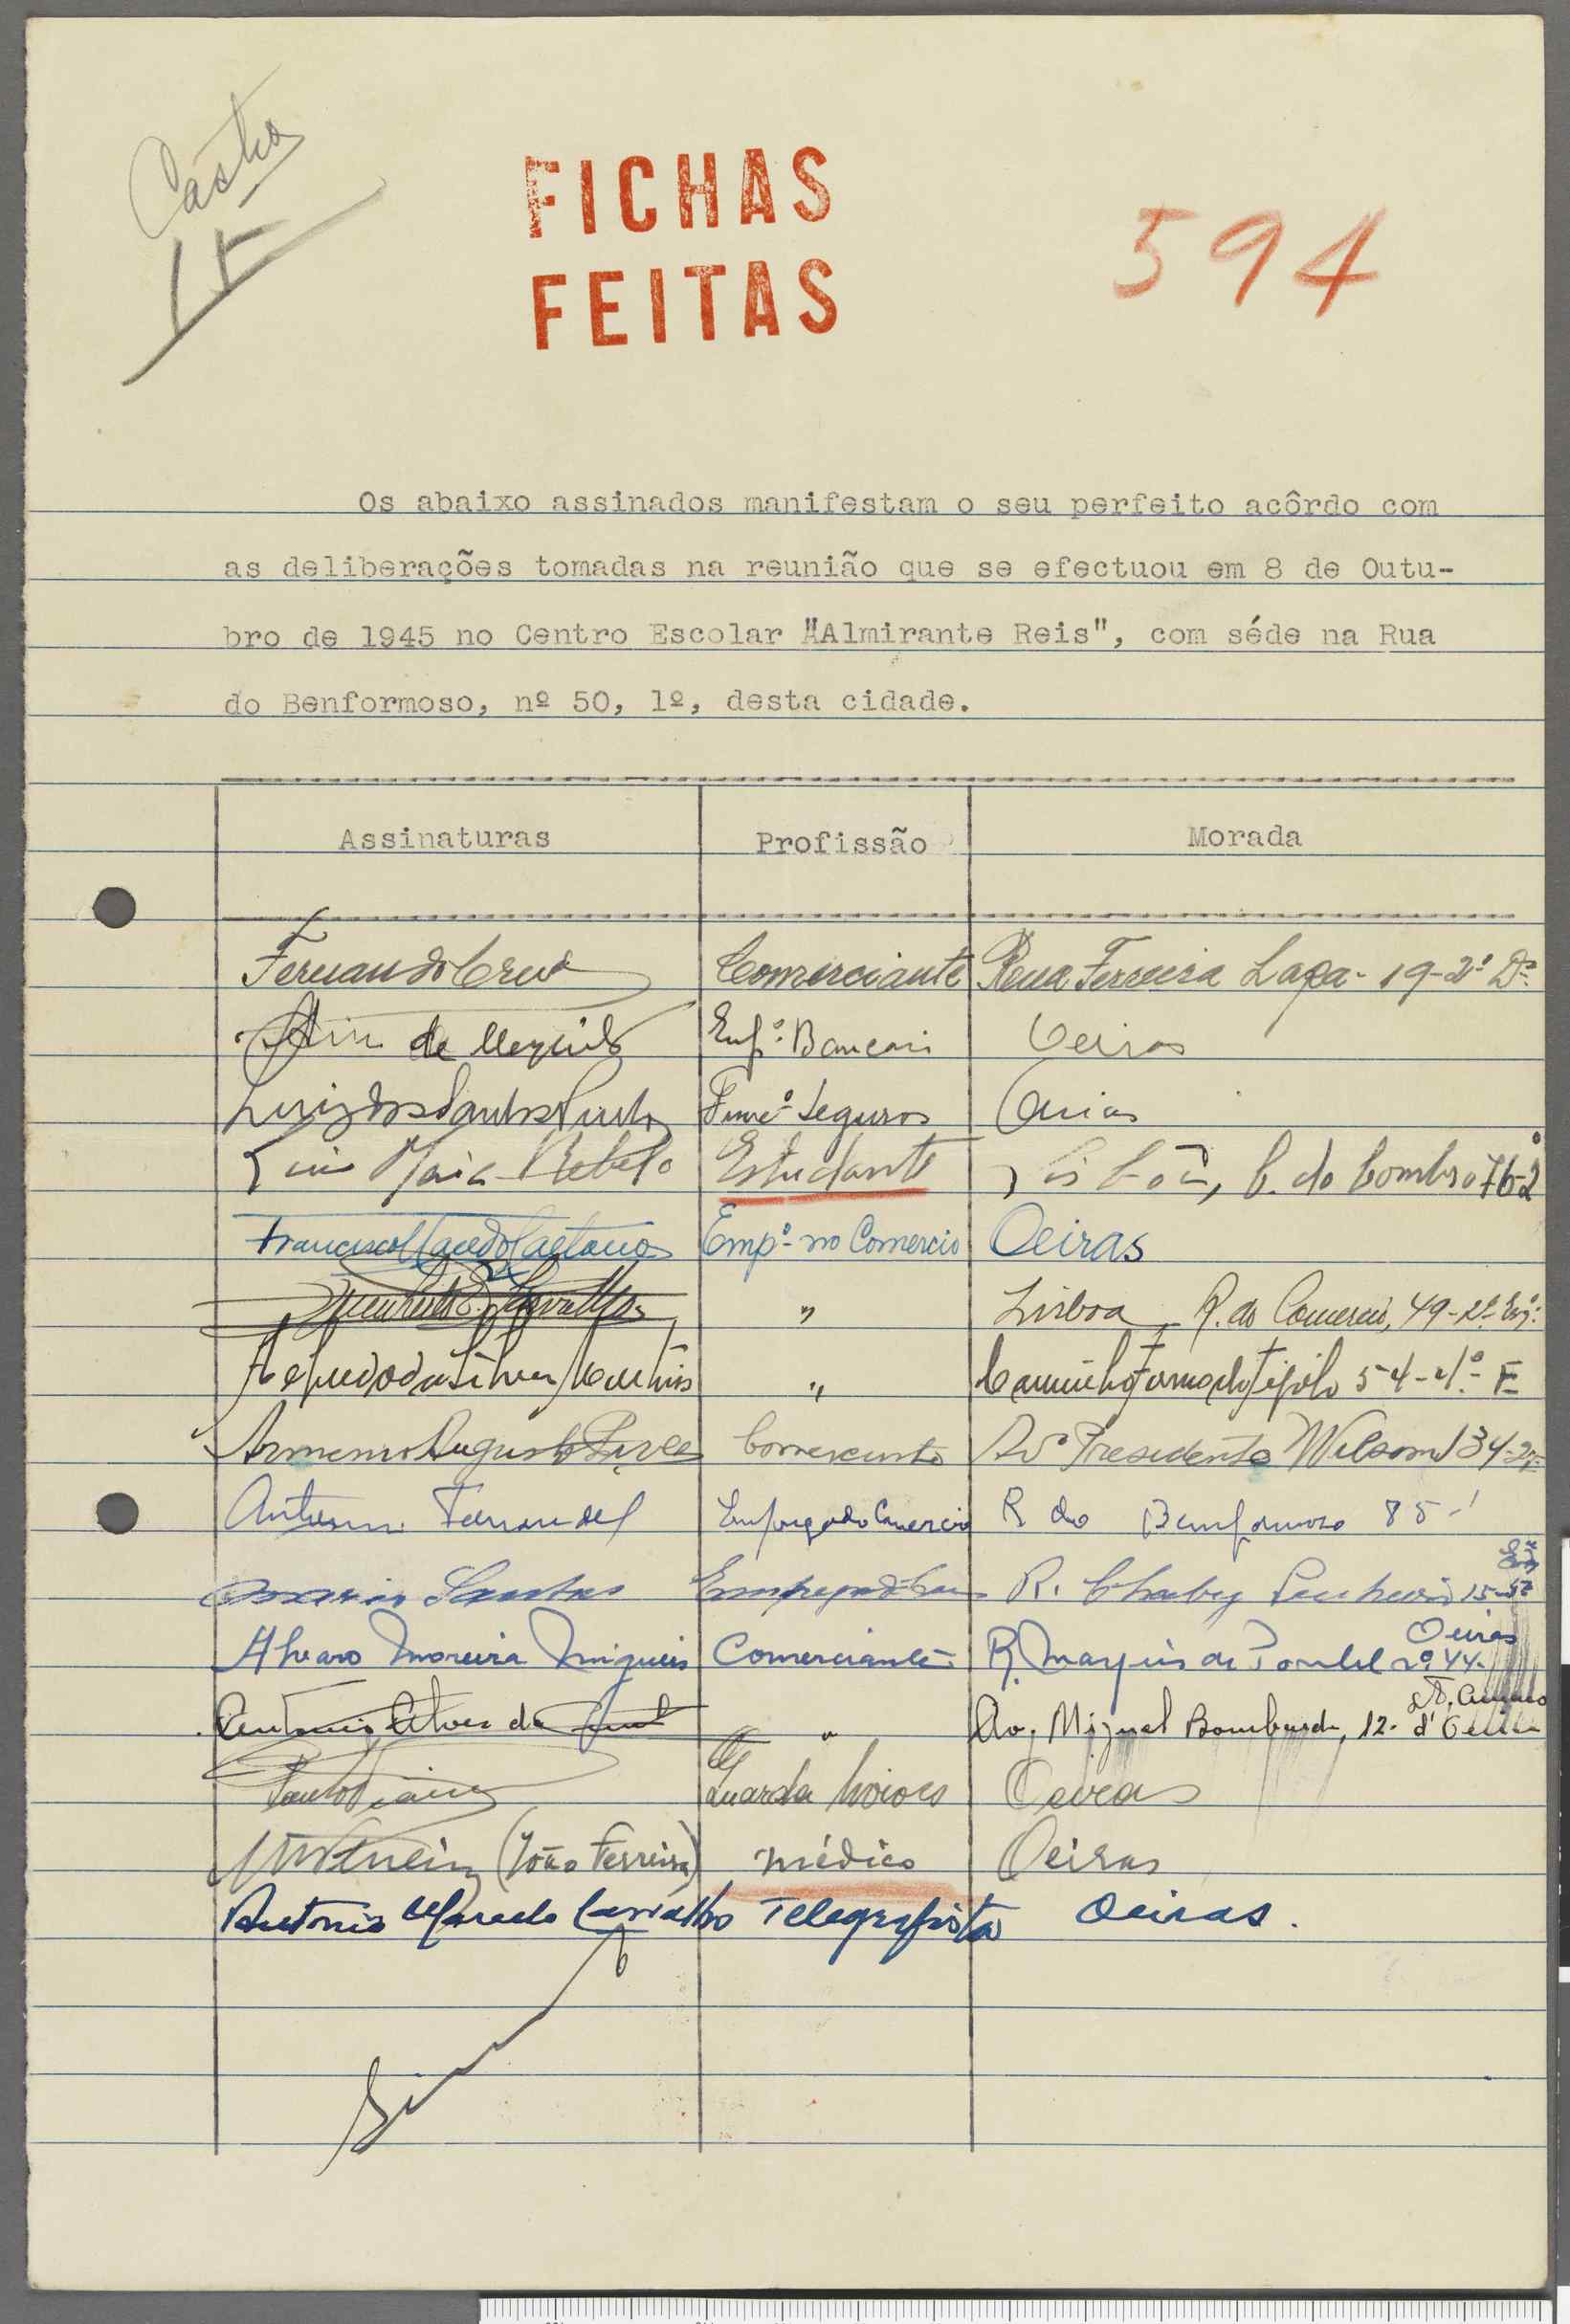 Castro
15
FICHAS
FEITAS
594
Os abaixo assinados manifestam o seu perfeito acôrdo com
as deliberações tomadas na reunião que se efectuou em 8 de Outu-
bro de 1945 no Centro Escolar "Almirante Reis", com séde na Rua
do Benformoso, nº 50, 1º, desta cidade.
Assinaturas Profissão Morada
Fernando Cruz Comerciante Rua Ferreira Lapa - 19-2º Dº
de Empº. Bancari Oeiras
Luiz dos Santos Funcº Seguros Oeiras
Luis Maia Rebelo Estudante Lisboa, C. do Combro 76-2º
Francisco Macedo Caetano Empº no Comercio Oeiras
" Lisboa, R. do Comercio, 49-2º Esqº.
da Silva Martins " Caminho Forno do Tijolo 54-
Armenio Augusto Comerciante Avª Presidente Wilson 134-
Antonio Fernandes Empregado Comercio R do Benformoso 85-1
Mario Santos R. Chaby Pinheiro 15-
Alvaro Moreira Migueis Comerciante R. Marquis de Pombal nº 44- Oeiras
Antonio Alves da " Av. Miguel Bombarda, 12- Stº. Amaro d'Oeiras
Paulo Guarda Oeiras
(João Ferreira) médico Oeiras
Antonio Macedo Carvalho Telegrafista Oeiras.